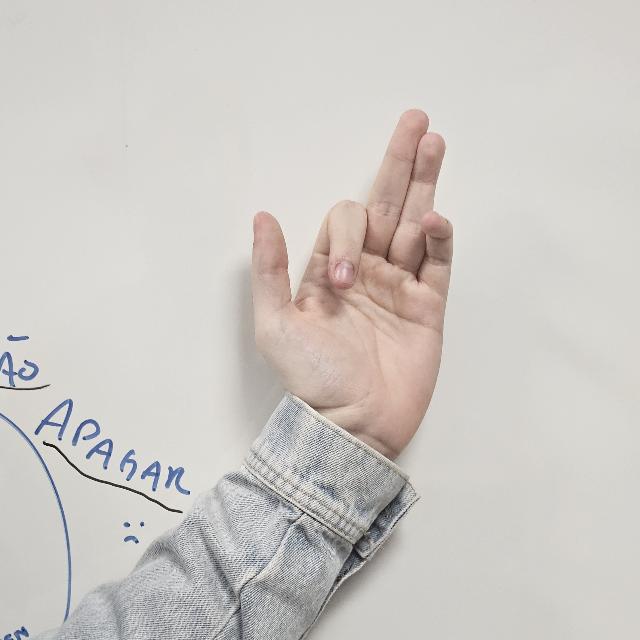 ÃO
APAGAR
:(
EN